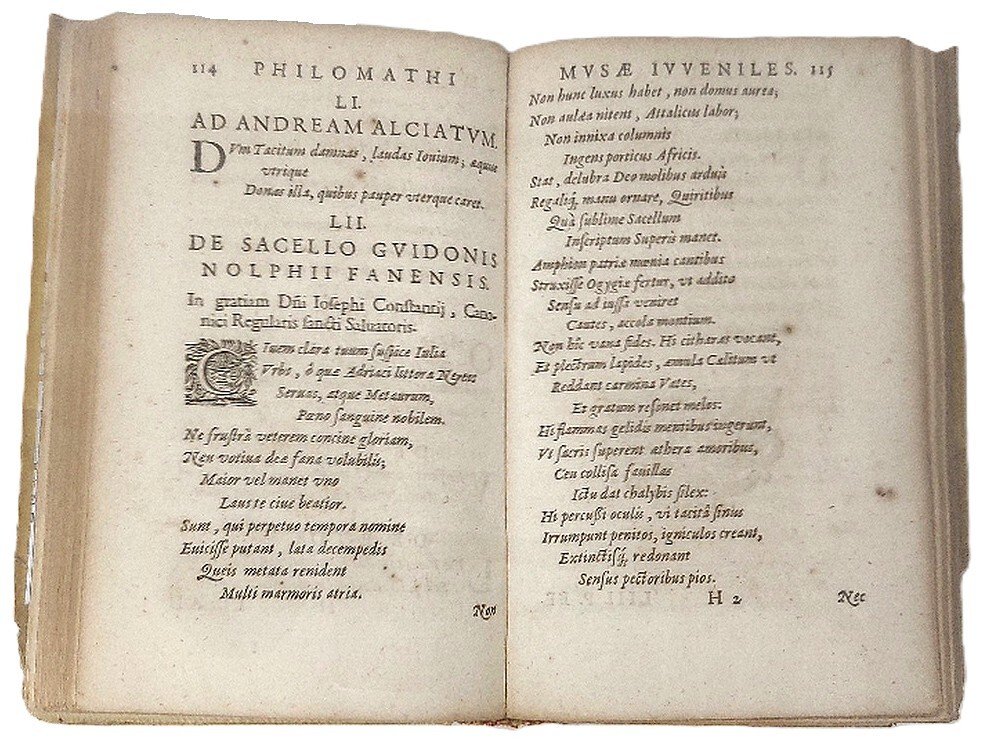 114 PHILOMATHI
LI.
AD ANDREAM ALCIATVM.
DVm Tacitum damnas, laudas Iouium; æquus
vtrique
Donas illa, quibus pauper vterque caret.
LII.
DE SACELLO GVIDONIS
NOLPHII FANENSIS.
In gratiam Dñi Iosephi Constantij, Cano-
nici Regularis sancti Saluatoris.
CIuem clara tuum suspice Iulia
Vrbs, ô quæ Adriaci littora Nereos
Seruas, atque Metaurum,
Pœno sanguine nobilem.
Ne frustrà veterem concine gloriam,
Neu votiua deæ fana volubilis;
Maior vel manet vno
Laus te ciue beatior.
Sunt, qui perpetuo tempora nomine
Euicisse putant, lata decempedis
Queis metata renident
Multi marmoris atria.
Non
MVSÆ IVVENILES. 115
Non hunc luxus habet, non domus aurea;
Non aulæa nitent, Attalicus labor;
Non innixa columnis
Ingens porticus Africis.
Stat, delubra Deo molibus arduis
Regaliq́; manu ornare, Quiritibus
Quà sublime Sacellum
Inscriptum Superis manet.
Amphion patriæ mœnia cantibus
Struxisse Ogygiæ fertur, vt addito
Sensu ad iussa venirent
Cautes, accola montium.
Non hîc vana fides. Hi citharas vocant,
Et plectrum lapides, æmula Cælitum vt
Reddant carmina Vates,
Et gratum resonet melos.
Hi flammas gelidis mentibus ingerunt,
Vt sacris superent æthera amoribus,
Ceu collisa fauillas
Ictu dat chalybis silex:
Hi percussi oculis, vi tacitâ sinus
Irrumpunt penitos, igniculos creant,
Extinctisq́; redonant
Sensus pectoribus pios.
H 2 Nec